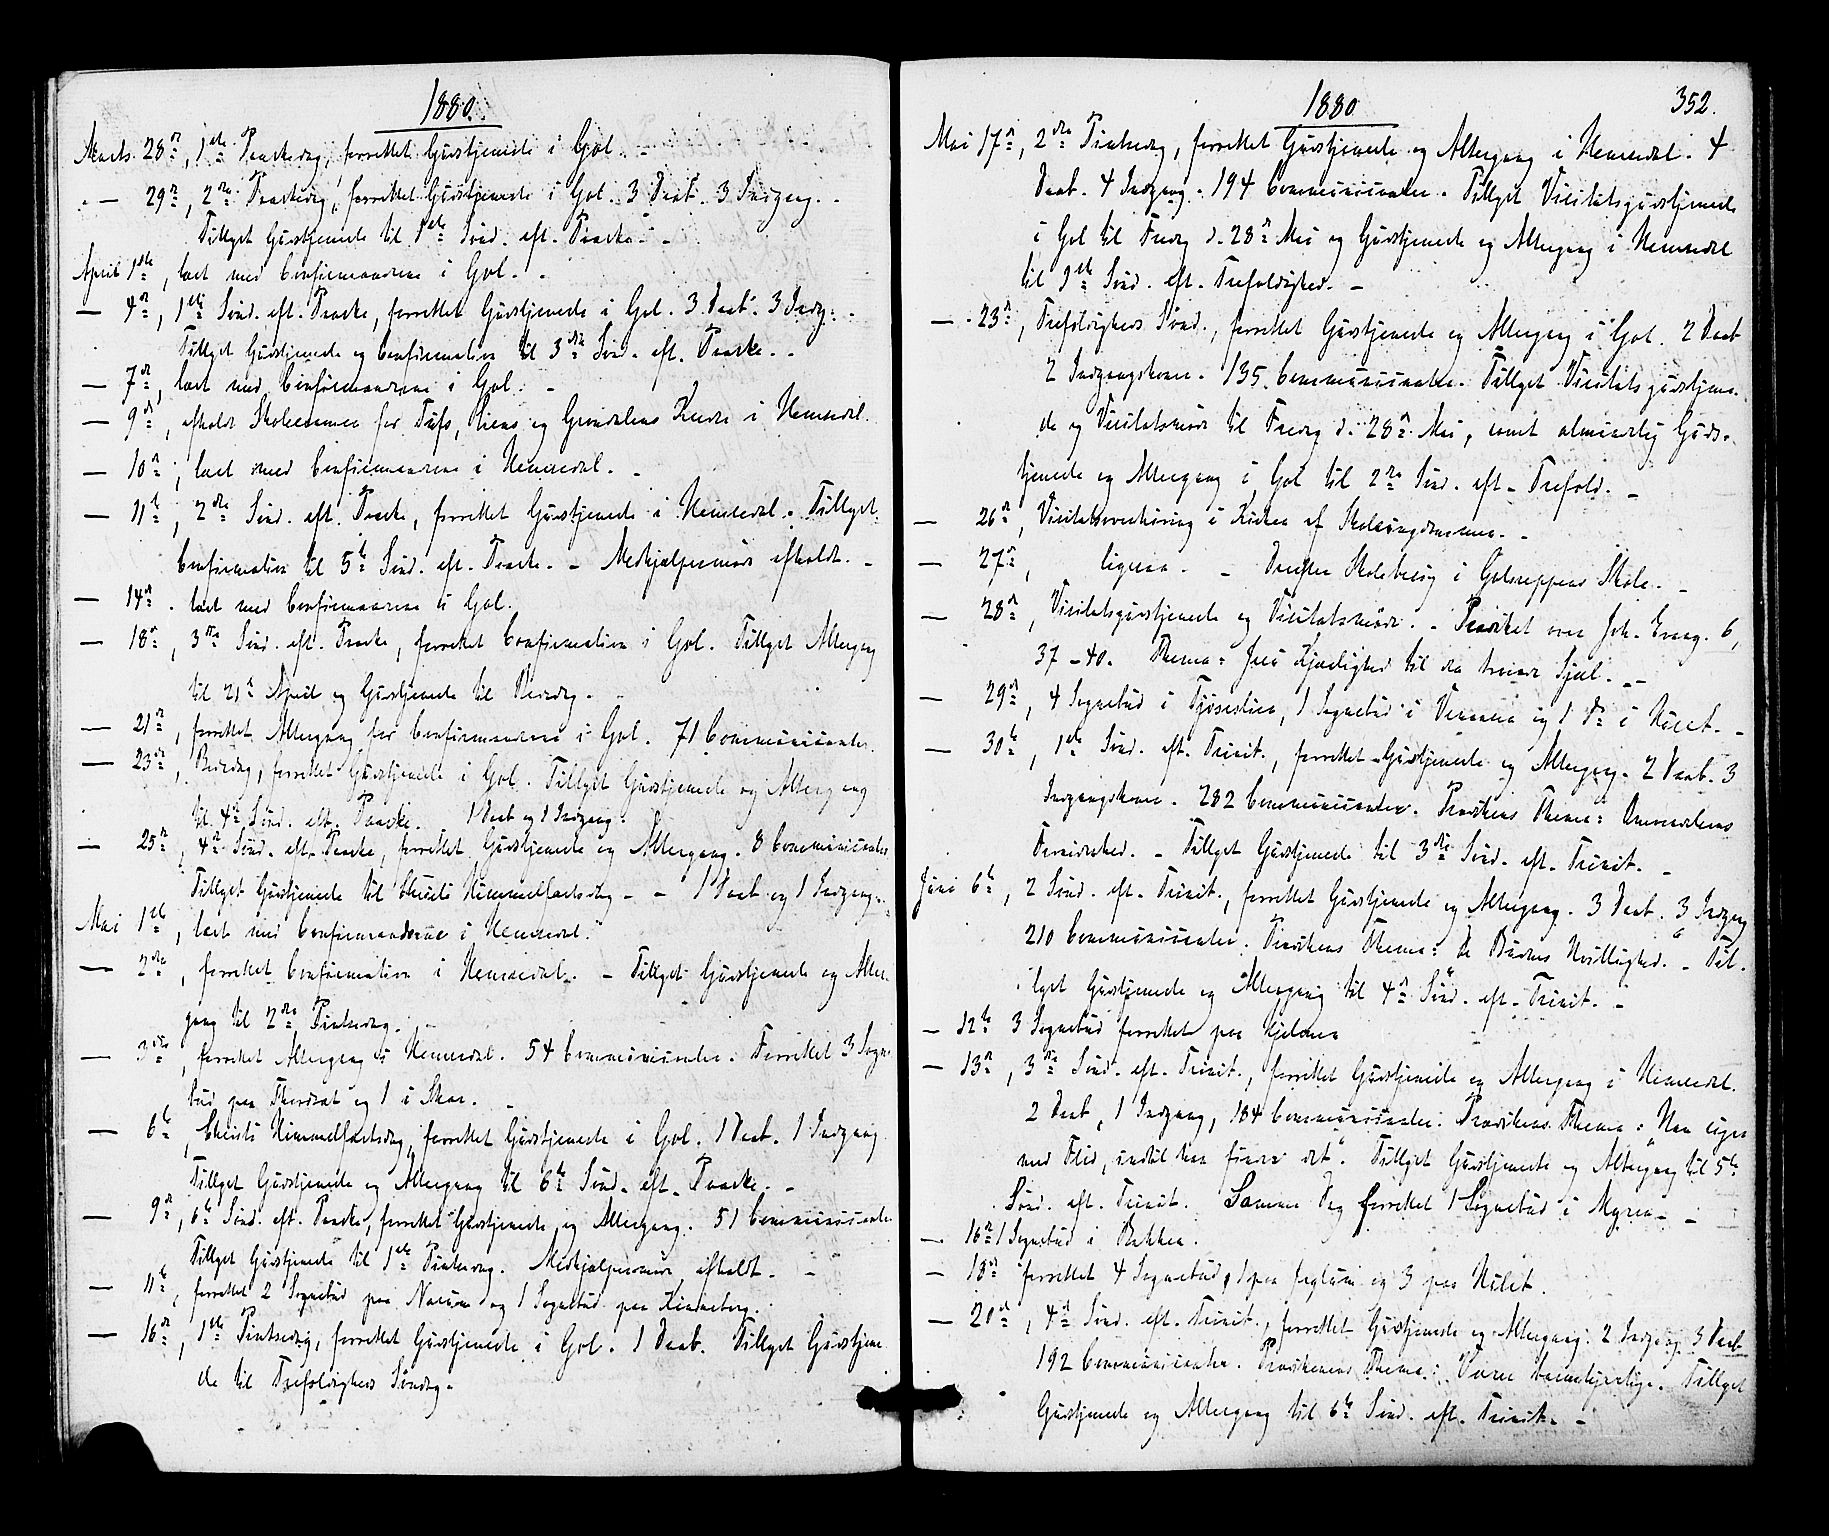 1880.
Marts. 28de, 1ste Paaskedag, forrettet Gudstjeneste i Gol. -
- 29de, 2den Paaskedag, forrettet Gudstjeneste i Gol. 3 Daab. 3 Indgang. -
Tillyst Gudstjeneste til 1ste Sønd. eft. Paaske. -
April 1ste, læst med Confirmanterne i Gol. -
- 4de, 1ste Sønd. eft. Paaske, forrettet Gudstjeneste i Gol. 3 Daab. 3 Indg. -
Tillyst Gudstjeneste og Confirmation til 3die Sønd. eft. Paaske. -
- 7de, læst med Confirmanterne i Gol. -
- 9de, afholdt Skoleexamen for Tufs, Liens og Grøndalens Kredse i Hemsedal.
- 10de, læst med Confirmanterne i Hemsedal. -
- 11te, 2den Sønd. eft. Paaske, forrettet Gudstjeneste i Hemsedal. Tillyst
Confirmation til 5te Sønd. eft. Paaske. - Medhjælpermøde afholdt. -
- 14de. læst med Confirmanterne i Gol.
- 18de, 3die Sønd. eft. Paaske, forrettet Confirmation i Gol. Tillyst Altergang
til 21de April og Gudstjeneste til Bededag. -
- 21de, forrettet Altergang for Confirmanterne i Gol. 71 Communicanter.
- 23de, Bededag, forrettet Gudstjeneste i Gol. Tillyst Gudstjeneste og Altergang
til 4de Sønd. eft. Paaske. 1 Daab og 1 Indgang.
- 25de, 4de Sønd. eft. Paaske, forrettet Gudstjeneste og Altergang. 8 Communicanter
Tillyst Gudstjeneste til Christi Himmelfartsdag - - 1 Daab og 1 Indgang. -
Mai 1ste, læst med Confirmanderne i Hemsedal.
- 2den, forrettet Confirmation i Hemsedal. - Tillyst Gudstjeneste og Alter-
gang til 2den Pintsedag. -
- 3die, forrettet Altergang i Hemsedal. 54 Communicanter. Forrettet 3 Sogne-
bud paa og 1 i Skar. -
- 6te, Christi Himmelfartsdag, forrettet Gudstjeneste i Gol. 1 Daab. 1 Indgang
Tillyst Gudstjeneste og Altergang til 6te Sønd. eft. Paaske. -
- 9de, 6te Sønd. eft. Paaske, forrettet Gudstjeneste og Altergang. 51 Communicanter
Tillyst Gudstjeneste til 1ste Pintsedag. Medhjælpermøde afholdt. -
- 11te, forrettet 2 Sognebud paa og 1 Sognebud paa
- 16de, 1ste Pintsedag, forrettet Gudstjeneste i Gol. 1 Daab. Tillyst Gudstjene-
de til Trefoldigheds Søndag. -
1880 352.
Mai 17de, 2den Pintsedag, forrettet Gudstjeneste og Altergang i Hemsedal. 4
Daab. 4 Indgang. 194 Communicanter. Tillyst Visitatsgudstjeneste
i Gol til Fredag d. 28de Mai og Gudstjeneste og Altergang i Hemsedal
til 1ste Sønd. eft. Trefoldighed. -
- 23de, Trefoldigheds Sønd., forrettet Gudstjeneste og Altergang i Gol. 2 Daab
2 Indgangskoner. 135 Communicanter. Tillyst Visitatsgudstjene-
de og Visitatsmøde til Fredag d. 28de Mai, samt almindelig Guds-
tjeneste og Altergang i Gol til 2den Sønd. eft. Trefold. -
- 26de, Visitatsoverhøring i Kirken af Skoleungdommen. -
- 27de, ligesaa. - Derefter Skolebesøg i Golreppens Skole. -
- 28de, Visitatsgudstjeneste og Visitatsmøde. - Prædiket over Joh. Evang. 6,
37 - 40. Thema: Jesu Kjærlighed til Sjæl. -
- 29de, 4 Sognebud i 1 Sognebud i og 1 do i Huset. -
- 30te, 1ste Sønd. eft. Trinit., forrettet Gudstjeneste og Altergang. 2 Daab. 3
Indgangskoner. 282 Communicanter. Prædikens Thema:
- Tillyst Gudstjeneste til 3die Sønd. eft. Trinit. -
Juni 6te, 2 Sønd. eft. Trinit., forrettet Gudstjeneste og Altergang. 3 Daab. 3 Indgang
210 Communicanter. Prædikens Thema: De Budnes Uvillighed. - Til-
lyst Gudstjeneste og Altergang til 4de Sønd. eft. Trinit. -
- 12te 3 Sognebud forrettet paa
- 13de, 3die Sønd. eft. Trinit., forrettet Gudstjeneste og Altergang i Hemsedal.
2 Daab, 1 Indgang, 184 Communicanter. Prædikens Thema: "Han søger
med Flid, indtil han finder det". Tillyst Gudstjeneste og Altergang til 5te
Sønd. eft. Trinit. Samme Dag forrettet 1 Sognebud i Myren. -
- 16de 1 Sognebud i Bakken.
- 18de forrettet 4 Sognebud, 1 paa og 3 paa Huset.
- 20de, 4de Sønd. eft. Trinit., forrettet Gudstjeneste og Altergang. 2 Indgang 3 Daab
192 Communicanter. Prædikenens Thema: Værer barmhjertige. Tillyst
Gudstjeneste og Altergang til 6te Sønd. eft. Trinit. -